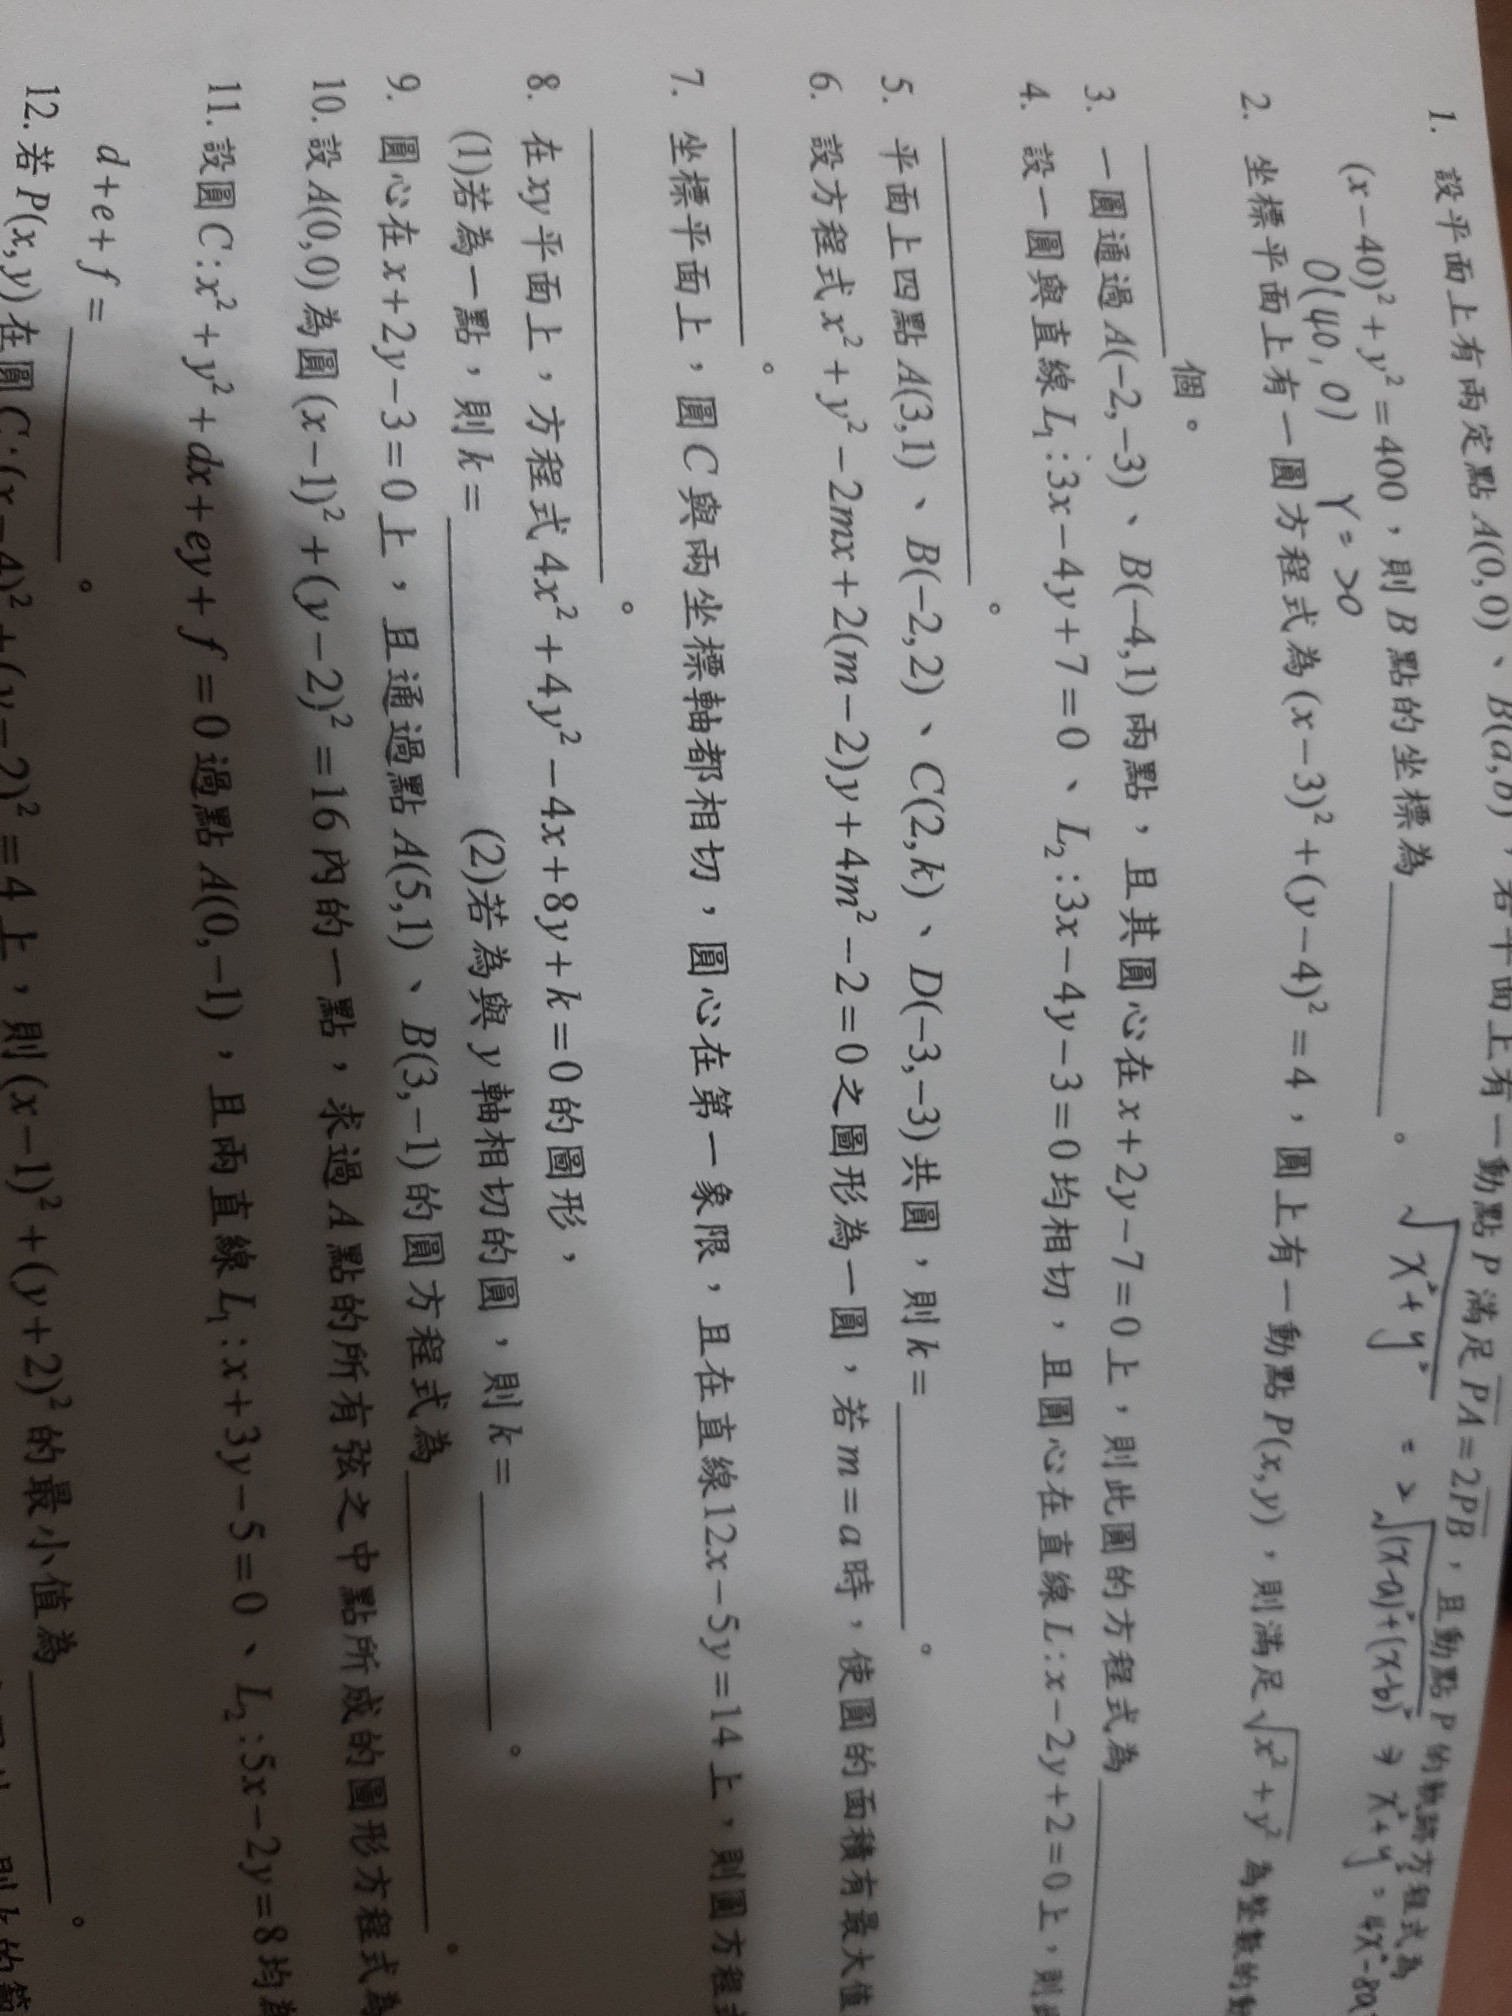 1. 設平面上有兩定點 A(0,0)、B(a,b)，若平面上有一動點 P 滿足 PA=2PB，且動點 P 的軌跡方程式為
(x-40)²+y²=400，則 B 點的坐標為________。 √x²+y² = 2√(x-a)²+(x-b)² ⇒ x²+y²=4x²-8a
O(40,0) r=20
2. 坐標平面上有一圓方程式為(x-3)²+(y-4)²=4，圓上有一動點 P(x,y)，則滿足√x²+y² 為整數的動
________個。
3. 一圓通過 A(-2,-3)、B(-4,1)兩點，且其圓心在 x+2y-7=0上，則此圓的方程式為________
4. 設一圓與直線 L₁:3x-4y+7=0、L₂:3x-4y-3=0均相切，且圓心在直線 L:x-2y+2=0上，則
________。
5. 平面上四點 A(3,1)、B(-2,2)、C(2,k)、D(-3,-3)共圓，則 k=________。
6. 設方程式 x²+y²-2mx+2(m-2)y+4m²-2=0之圖形為一圓，若 m=a 時，使圓的面積有最大值
________。
7. 坐標平面上，圓 C 與兩坐標軸都相切，圓心在第一象限，且在直線12x-5y=14上，則圓方程
________。
8. 在 xy 平面上，方程式 4x²+4y²-4x+8y+k=0的圖形，
(1)若為一點，則 k=________ (2)若為與 y 軸相切的圓，則 k=________。
9. 圓心在 x+2y-3=0上，且通過點 A(5,1)、B(3,-1)的圓方程式為________。
10. 設 A(0,0)為圓(x-1)²+(y-2)²=16內的一點，求過 A 點的所有弦之中點所成的圖形方程式為
11. 設圓 C:x²+y²+dx+ey+f=0過點 A(0,-1)，且兩直線 L₁:x+3y-5=0、L₂:5x-2y=8均為
d+e+f=________。
12. 若 P(x,y)在圓 C:(x-4)²+(y-2)²=4上，則(x-1)²+(y+2)²的最小值為________。